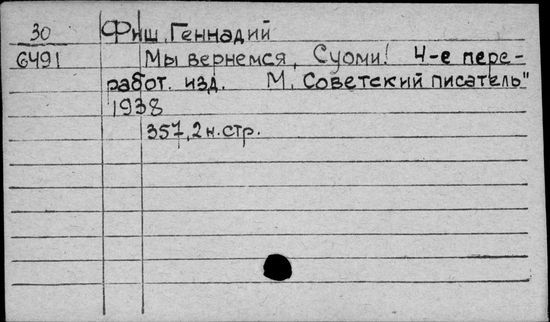 30 Фиш, Геннадий
6491 Мы вернемся, Суоми! 4-е пере-
работ. изд. М. Советский писатель"
1938
357, 2 н. стр.